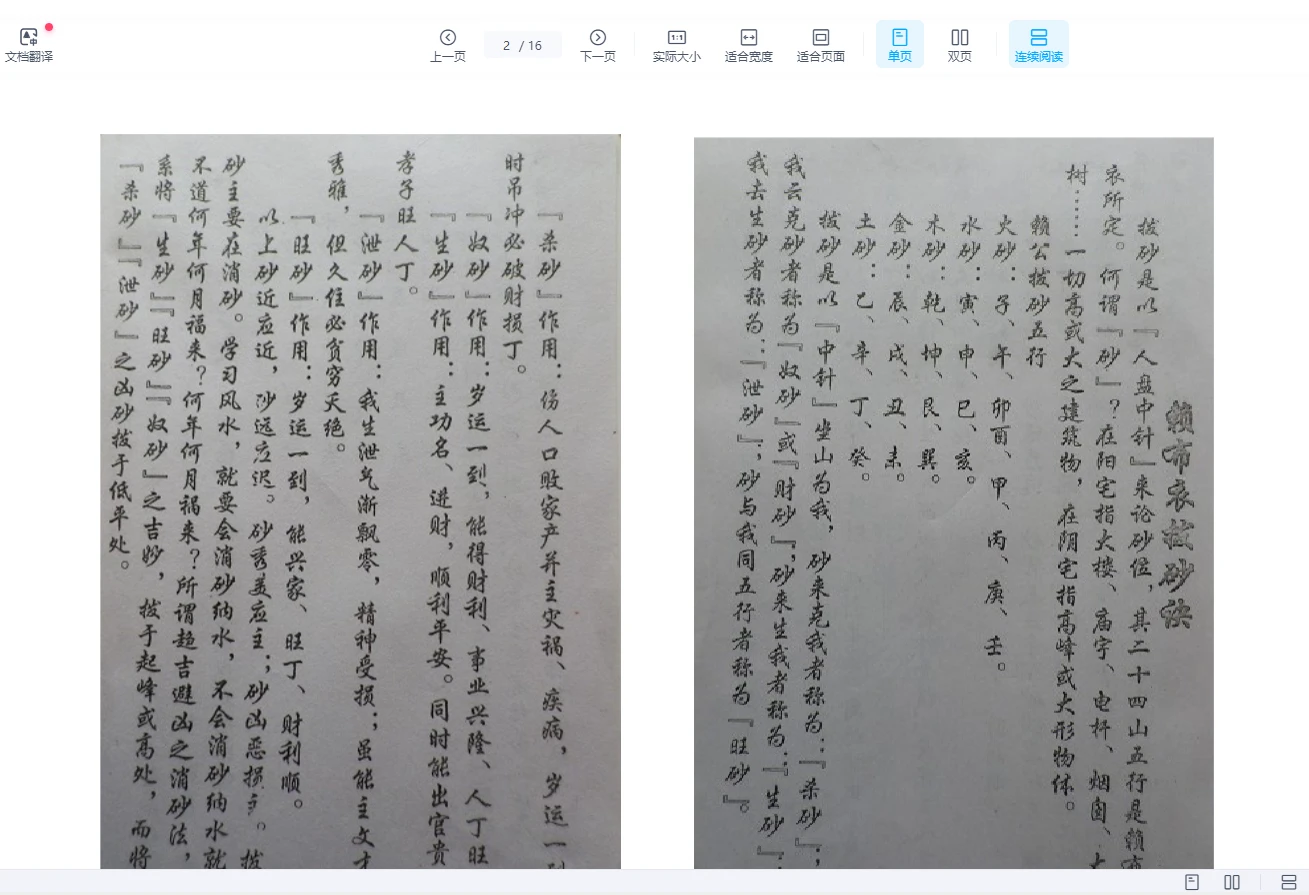 文档翻译
上一页
2 / 16
下一页
1:1
实际大小
适合宽度
适合页面
单页
双页
连续阅读
賴布衣拔砂诀
拔砂是以『人盘中针』来论砂位，其二十四山五行是赖布
衣所定。何谓『砂』？在阳宅指大楼、庙宇、电杆、烟囱、大
树……一切高或大之建筑物，在阴宅指高峰或大形物体。
赖公拔砂五行
火砂：子、午、卯酉、甲、丙、庚、壬。
水砂：寅、申、巳、亥。
木砂：乾、坤、艮、巽。
金砂：辰、戌、丑、未。
土砂：乙、辛、丁、癸。
拔砂是以『中针』坐山为我，砂来克我者称为：『杀砂』；
我云克砂者称为『奴砂』或『财砂』，砂来生我者称为：『生砂』：
我去生砂者称为：『泄砂』；砂与我同五行者称为『旺砂』。
『杀砂』作用：伤人口败家产并主灾祸、疾病，岁运一到
时吊冲必破财损丁。
『奴砂』作用：岁运一到，能得财利、事业兴隆、人丁旺
『生砂』作用：主功名、进财，顺利平安。同时能出官贵
孝子旺人丁。
『泄砂』作用：我生泄气渐飘零，精神受损；虽能主文才
秀雅，但久住必贫穷夭绝。
『旺砂』作用：岁运一到，能兴家、旺丁、财利顺。
以上砂近应近，沙远应迟。砂秀美应主；砂凶恶损主。拔
砂主要在消砂。学习风水，就要会消砂纳水，不会消砂纳水就
不道何年何月福来？何年何月祸来？所谓趋吉避凶之消砂法，
系将『生砂』『旺砂』『奴砂』之吉妙，拔于起峰或高处，而将
『杀砂』『泄砂』之凶砂拔于低平处。